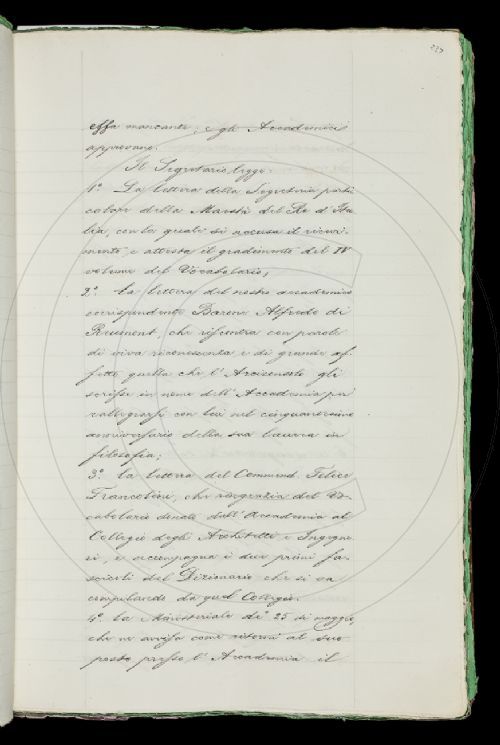 essa mancante; e gli Accademici
approvano.
Il Segretario legge:
1.° La lettera della Segreteria parti
colare della Maestà del Re d'Ita
lia, con la quale si accusa il ricevi
mento, e attesta il gradimento del IV
volume del Vocabolario;
2.° la lettera del nostro accademico
corrispondente Barone Alfredo di
Reumont, che riscontra con parole
di viva riconoscenza e di grande af
fetto quella che l'Arciconsolo gli
scrisse in nome dell'Accademia per
rallegrarsi con lui nel cinquantesimo
anniversario della sua laurea in
filosofia;
3.° la lettera del Commend. Felice
Francolini, che ringrazia del Vo
cabolario donato dall'Accademia al
Collegio degli Architetti e Ingegne
ri, e accompagna i due primi fa
scicoli del Dizionario che si va
compilando da quel Collegio.
4.° la Ministeriale de' 25 di maggio,
che ne avvisa come ritorni al suo
posto presso l'Accademia il